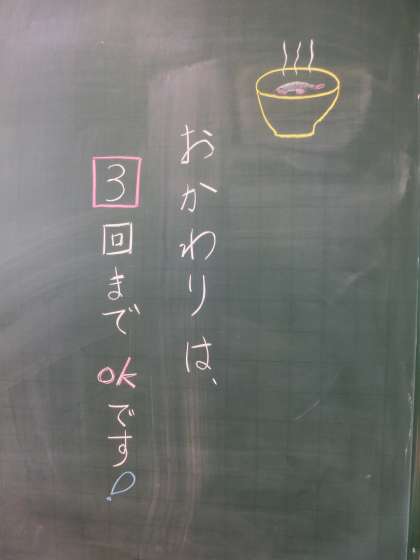 おかわりは、
3回までOKです!